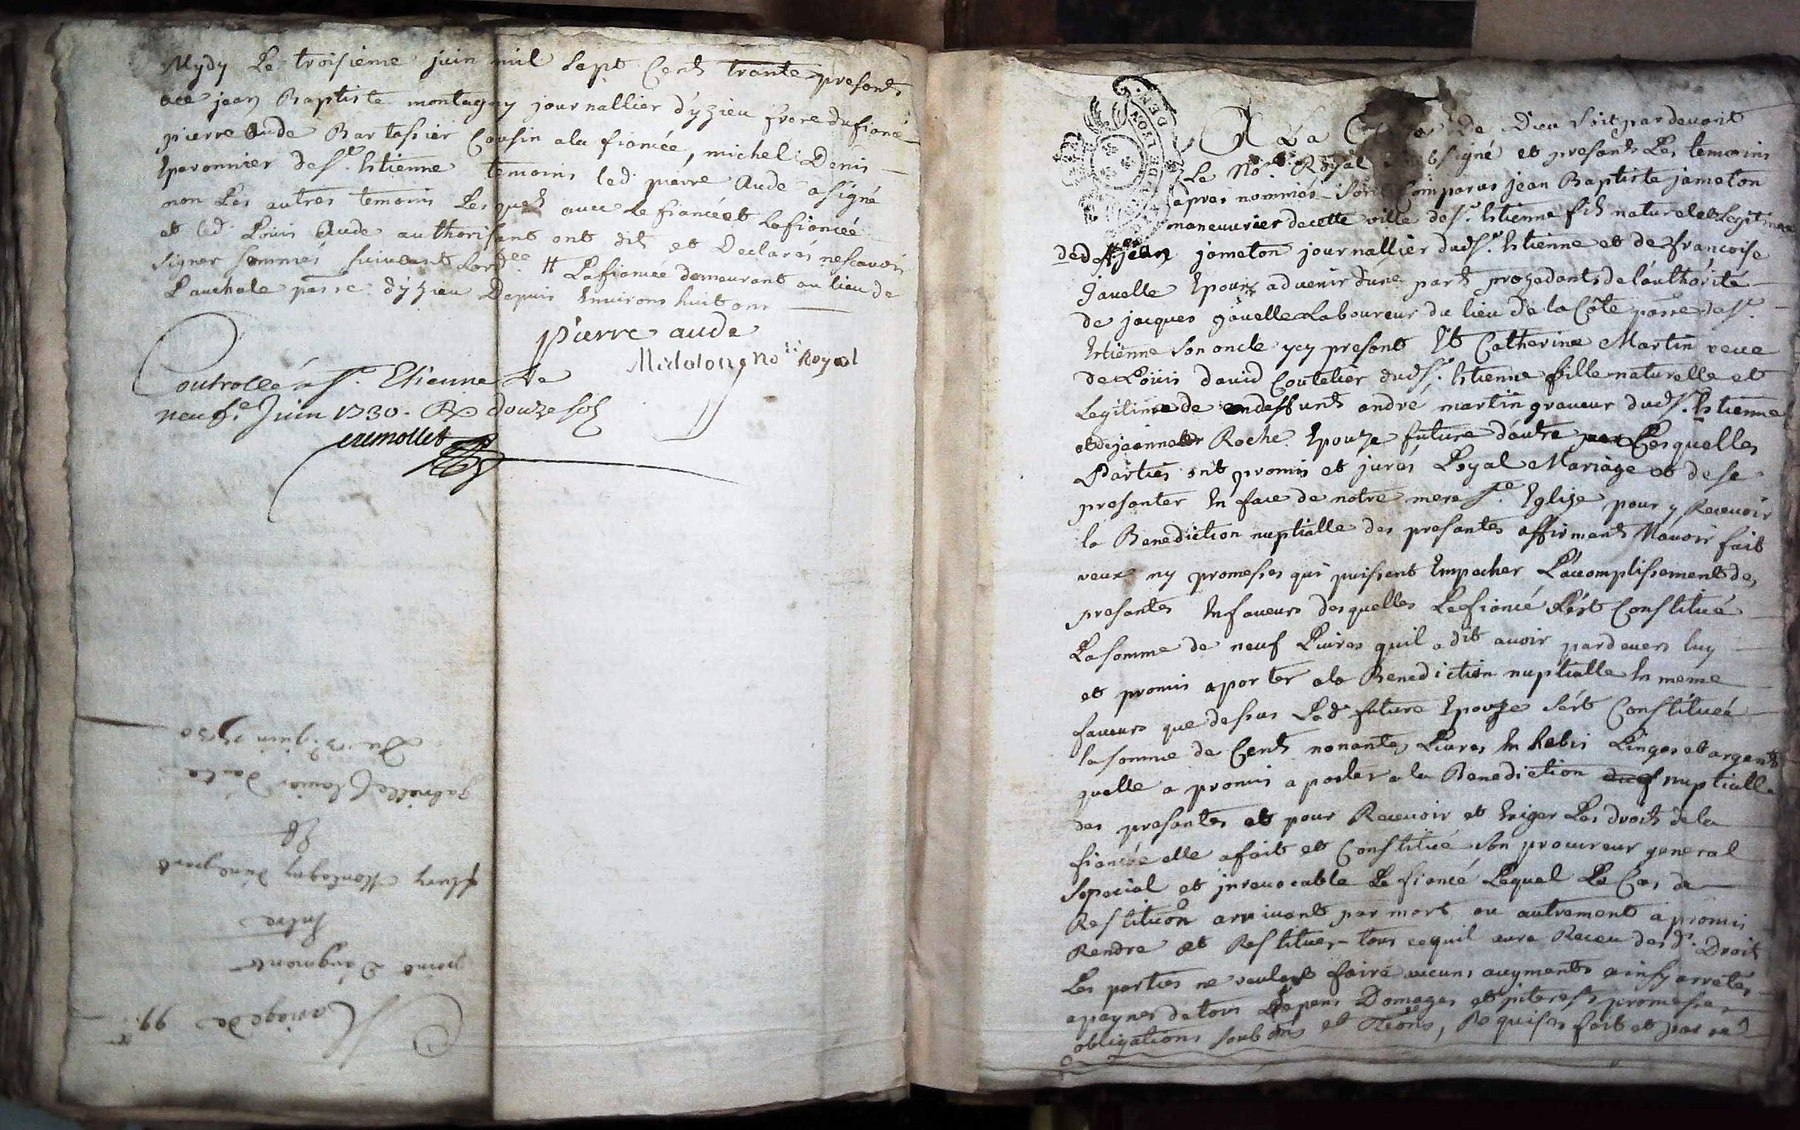 Mydy Le troisieme juin mil sept Cent trante presents
jean Baptiste montagny journallier d'yzieu frere du fiancé
pierre Aude Bartassier Cousin ala fiancée, michel Denis
Eperonnier de St. Estienne temoins led. pierre Aude a signé
non Les autres temoins Lesquels avec Le fiancé et La fiancée
et led. Louis Aude authorisant ont dit et Declarés ne scavoir
signer sommés suivant Lord.ce # La fiancée demeurant au lieu de
parroisse d'yzieu Depuis Environs huit ans
pierre aude
No.re Royal
Controllé a St. Etienne Le
neuf.e Juin 1730. R douze sols
cumollet
Mariage de 99.
point d'augments
Entre
fleury Montagny d'une part
Et
gabrielle d'autre
Du 3.e juin 1730
GEN. DE LYON
A La de Dieu soit pardevant
Le No.re Royal signé et presents Les temoins
apres nommés sont Comparus jean Baptiste jameton
maneuvrier de cette ville de St. Estienne fils naturel et Legitime
de deft jean jameton journallier dud St. Estienne et de francoise
javelle Epoux advenir d'une part procedants de l'authorité
de jacques javelle Laboureur du lieu de la Côte parre de St.
Estienne son oncle ycy present Et Catherine Martin veuve
de Loüis david Coutelier dud St. Estienne fille naturelle et
Legitime de deffunt andré martin graveur dud St. Estienne
et de jeanne Roche Epouze future d'autre Lesquelles
Parties ont promis et jurés Loyal Mariage et de se
presenter En face de notre mere Ste. Eglize pour y Recevoir
la Benediction nuptialle des presantes affirmants N'avoir fait
veux ny promesses qui puissent Empecher L'accomplissement des
presantes En faveurs desquelles Le fiancé s'est Constitué
La somme de neuf Livres quil a dit avoir pardevers luy
et promis aporter ala Benediction nuptialle En meme
faveurs que dessus Lad. future Epouze s'est Constituée
la somme de Cent nonante Livres En habis Linges et argent
quelle a promis a porter a la Benediction nuptialle
des presantes et pour Recevoir et Exiger Les droits de la
fiancée elle a fait et Constitué son procureur general
special et jrrevocable Le fiancé Lequel Le Cas de
Restituon arrivant par mort ou autrement a promis
Rendre et Restituer tous ce quil aura Receu desd. Droit
Les parties ne voulant faire aucuns augments ainsy arretés
a payner de tous Depens Domages et jnterests promesses
obligations soub.ons et Reons, Requises fait et passé